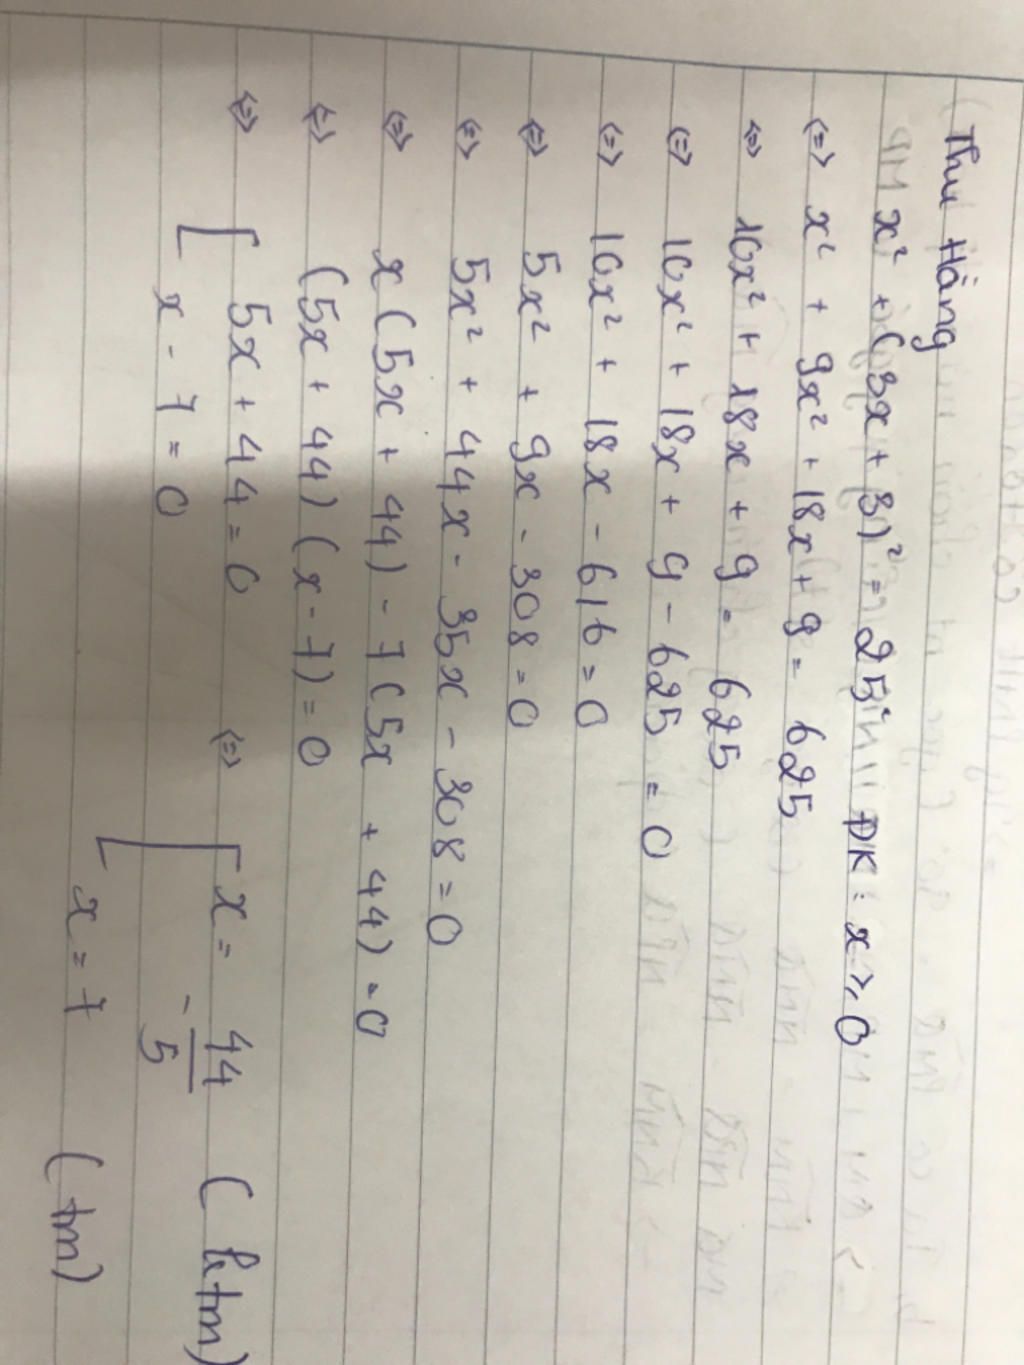 Thu Hằng
x² + (3x + 3)² = 25² ĐK: x ≥ 0
<=> x² + 9x² + 18x + 9 = 625
<=> 10x² + 18x + 9 = 625
<=> 10x² + 18x + 9 - 625 = 0
<=> 10x² + 18x - 616 = 0
<=> 5x² + 9x - 308 = 0
<=> 5x² + 44x - 35x - 308 = 0
<=> x (5x + 44) - 7 (5x + 44) = 0
<=> (5x + 44) (x - 7) = 0
<=> [ 5x + 44 = 0 <=> [ x = -44/5 (ktm)
x - 7 = 0 x = 7 (tm)